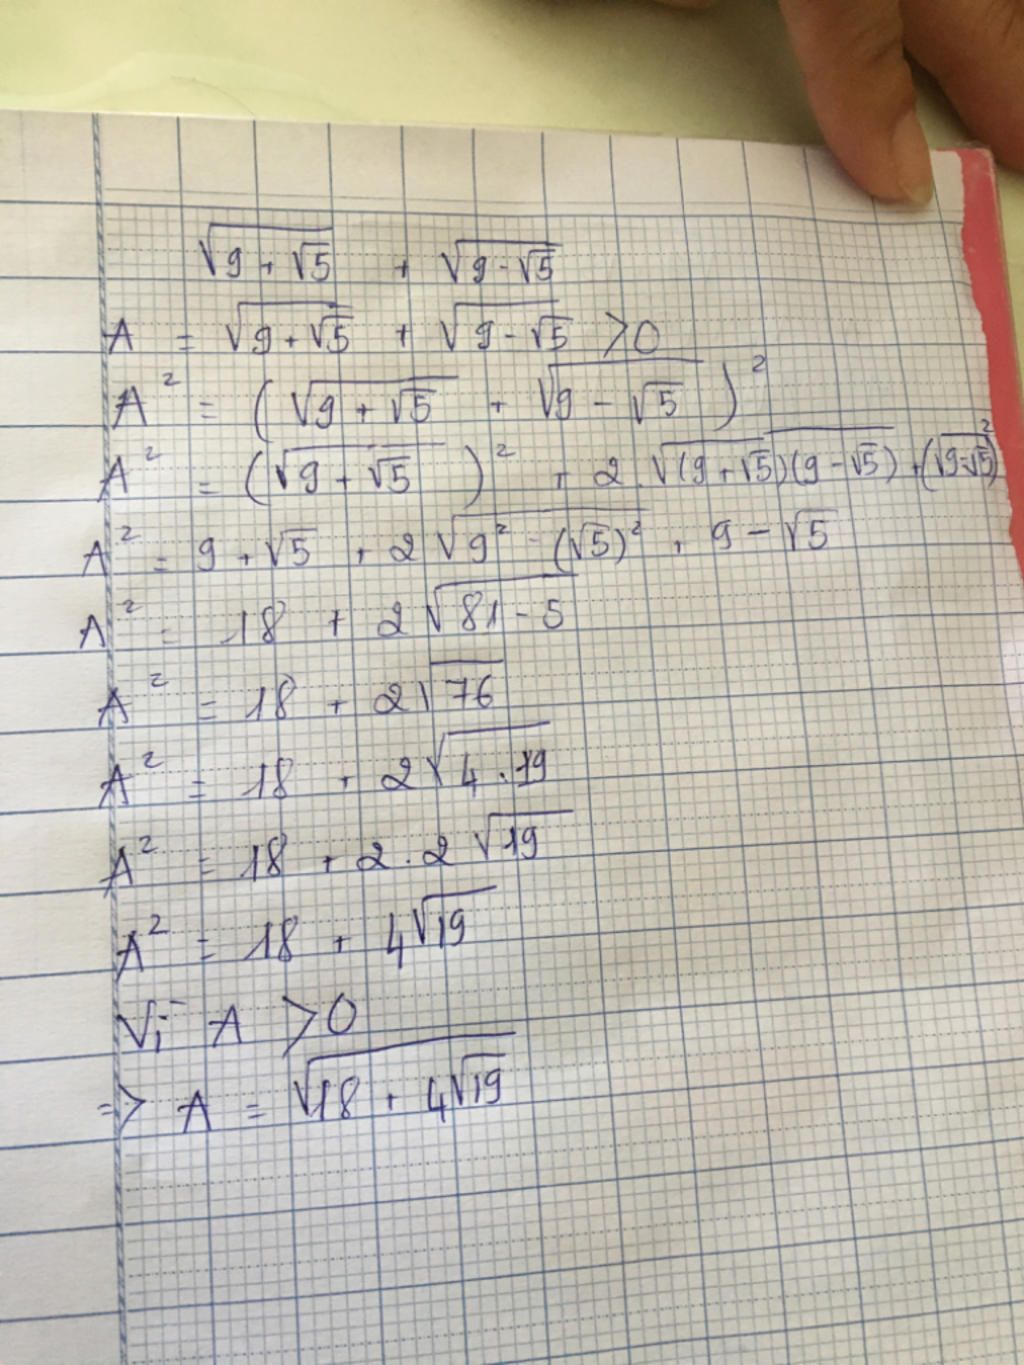 √(9 + √5) + √(9 - √5)
A = √(9 + √5) + √(9 - √5) > 0
A² = (√(9 + √5) + √(9 - √5))²
A² = (√(9 + √5))² + 2.√((9 + √5)(9 - √5)) + (√(9 - √5))²
A² = 9 + √5 + 2√(9² - (√5)²) + 9 - √5
A² = 18 + 2√(81 - 5)
A² = 18 + 2√76
A² = 18 + 2√(4.19)
A² = 18 + 2.2√19
A² = 18 + 4√19
Vì A > 0
=> A = √(18 + 4√19)